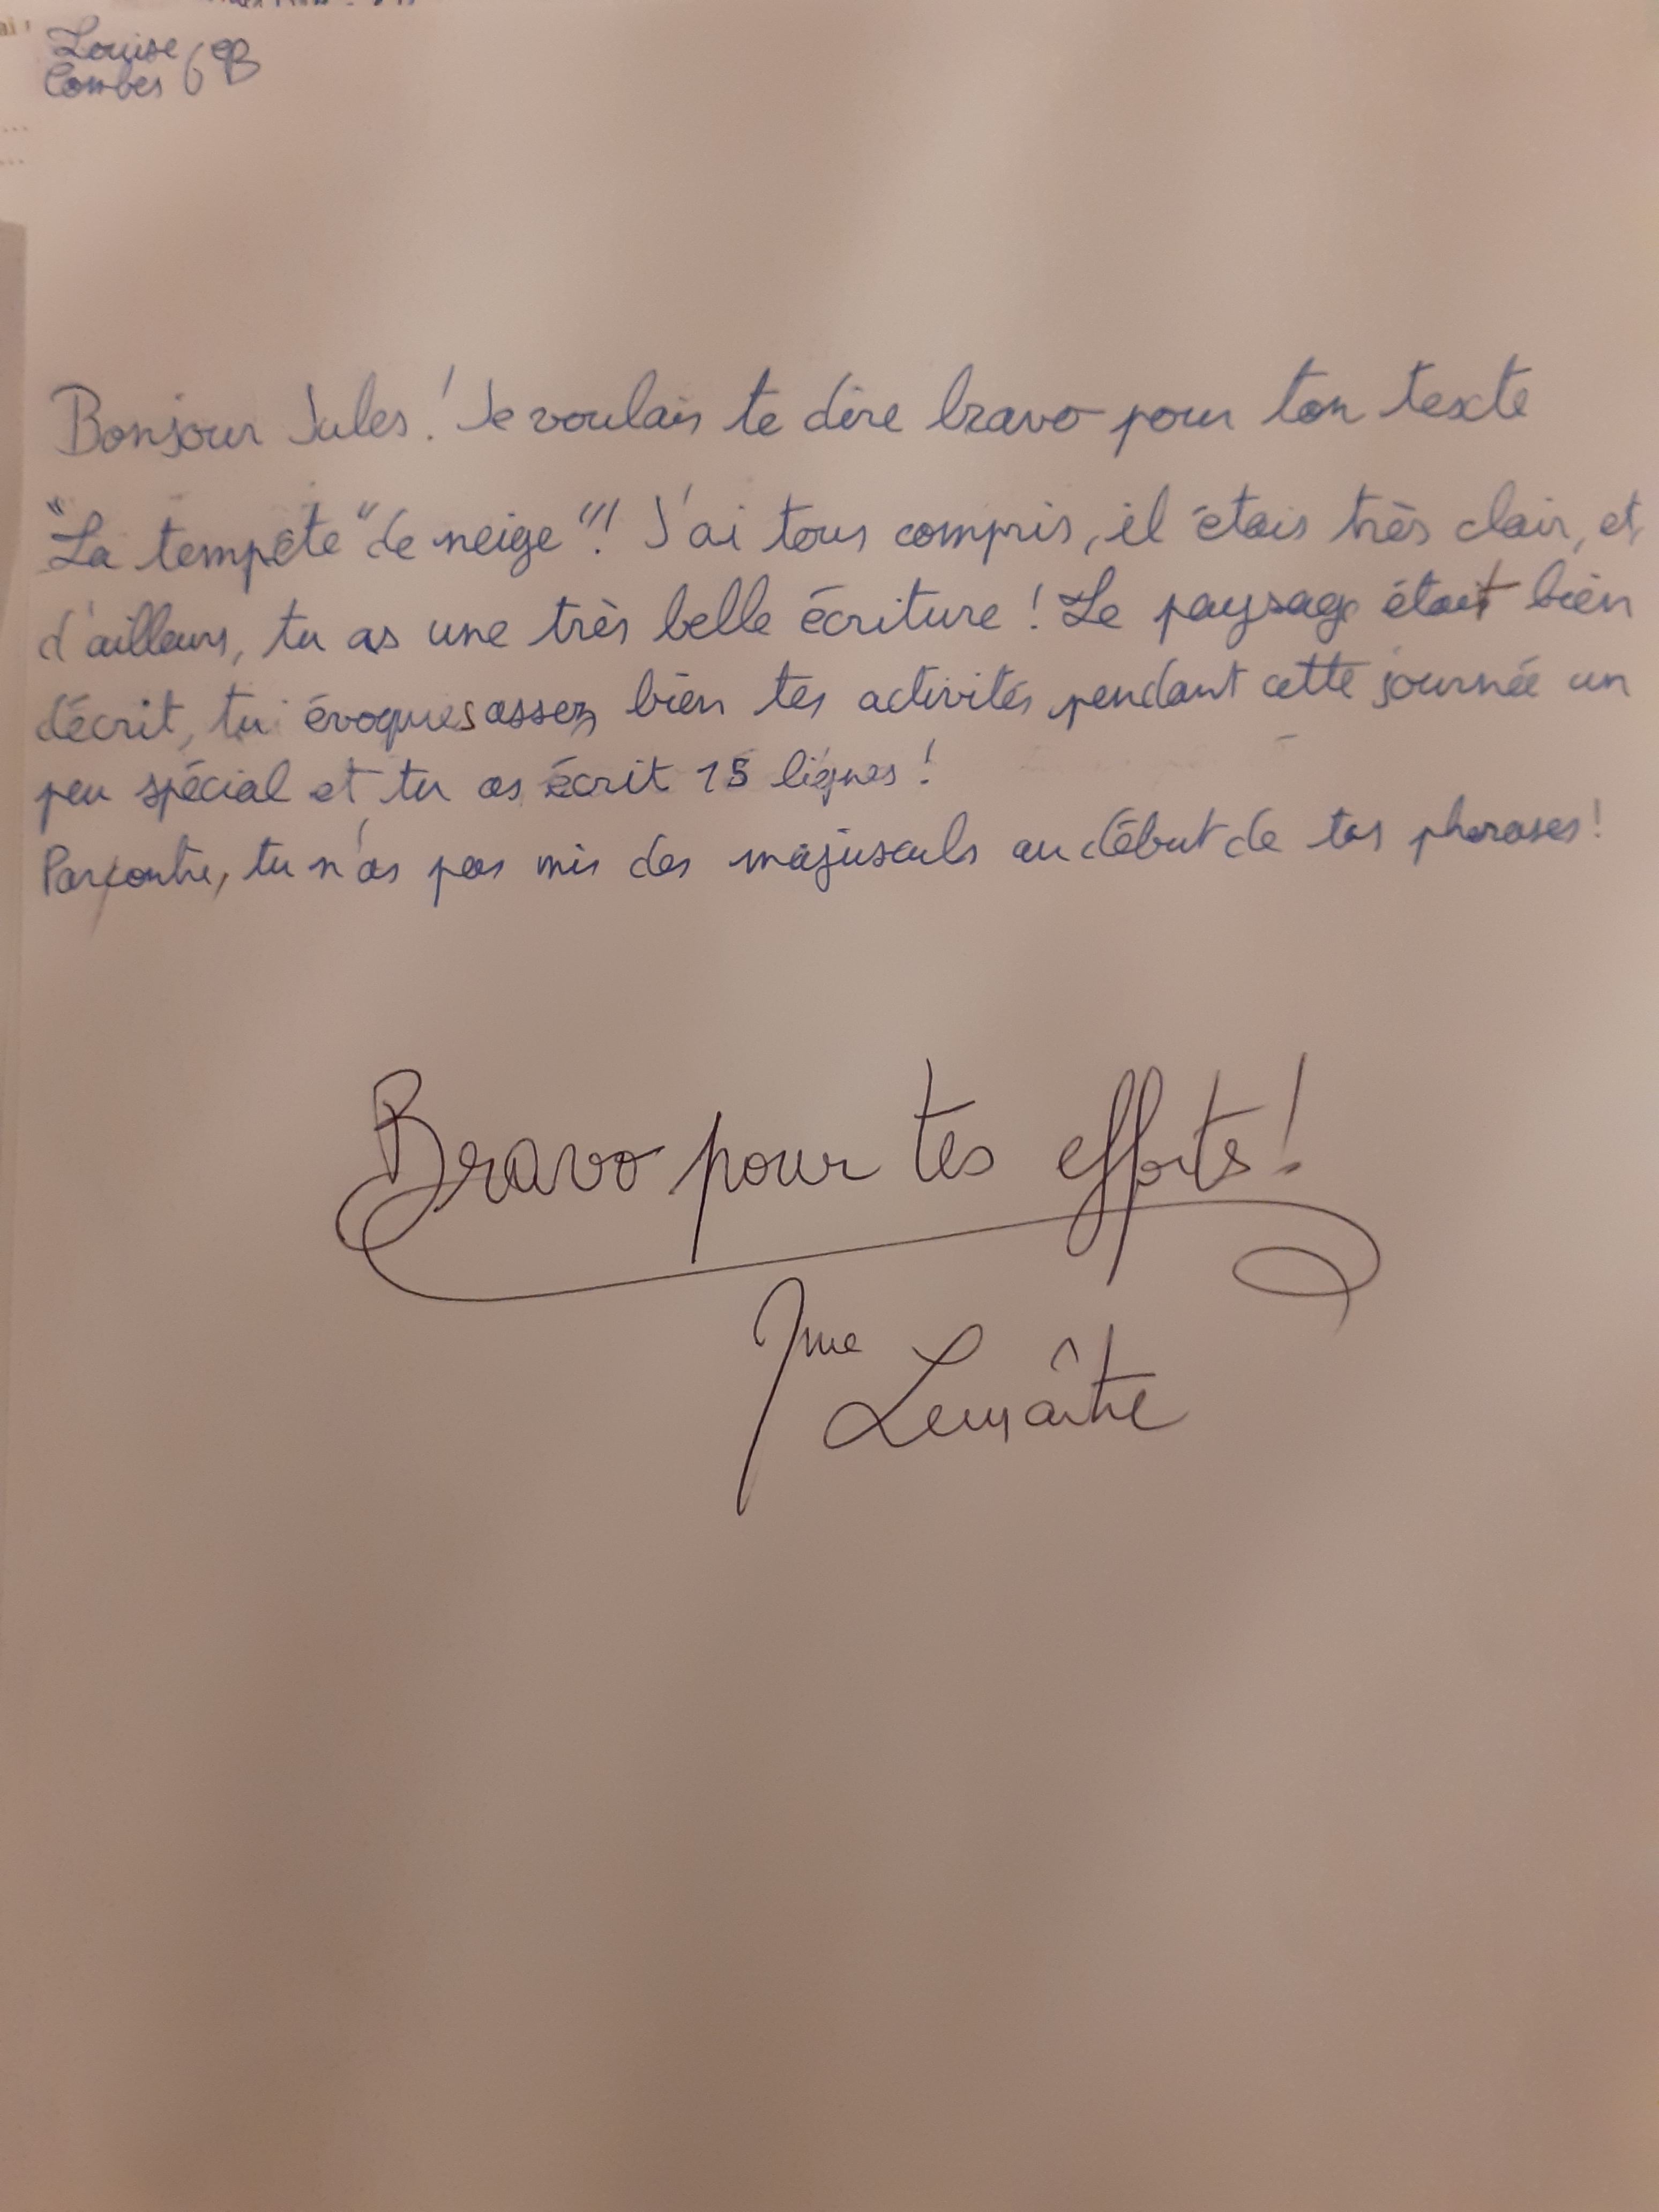 Louise
Combes 6eB
Bonjour Jules! Je voulais te dire bravo pour ton texte
"La tempête "de neige"!! J'ai tous compris, il étais très clair, et
d'ailleurs, tu as une très belle écriture! Le paysage était bien
décrit, tu évoques assez bien tes activités pendant cette journée un
peu spécial et tu as écrit 15 lignes!
Par contre, tu n'as pas mis des majusculs au début de tas phrases!
Bravo pour tes efforts!
Mme
Lemaître